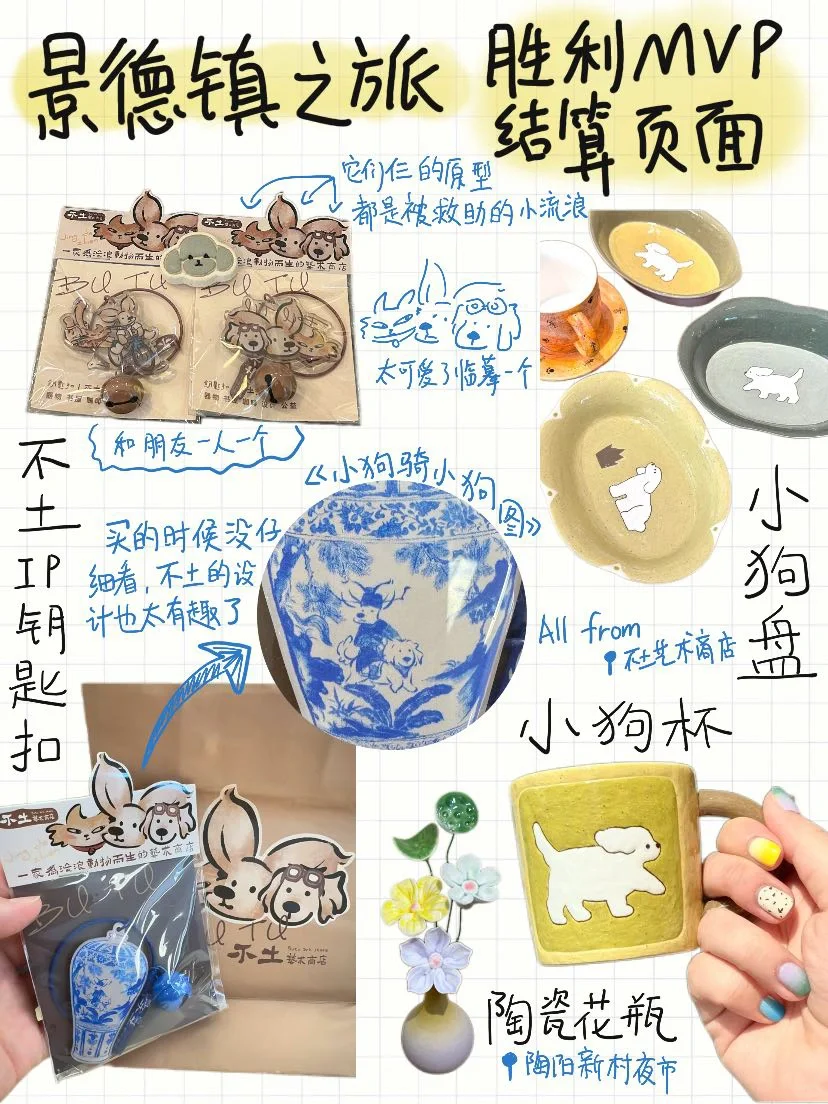 景德镇之旅
胜利MVP
结算页面
它们仨的原型
都是被救助的小流浪
不土
不土
一家为流浪動物而生的藝术商店
一家为流浪動物而生的藝术商店
BU TU
BU TU
太可爱了临摹一个
和朋友一人一个
不土IP钥匙扣
《小狗骑小狗图》
买的时候没仔
细看,不土的设
计也太有趣了
小狗盘
All from
不土艺术商店
小狗杯
不土
一家为流浪動物而生的藝术商店
BU TU
BU TU
不土
藝术商店
陶瓷花瓶
陶阳新村夜市